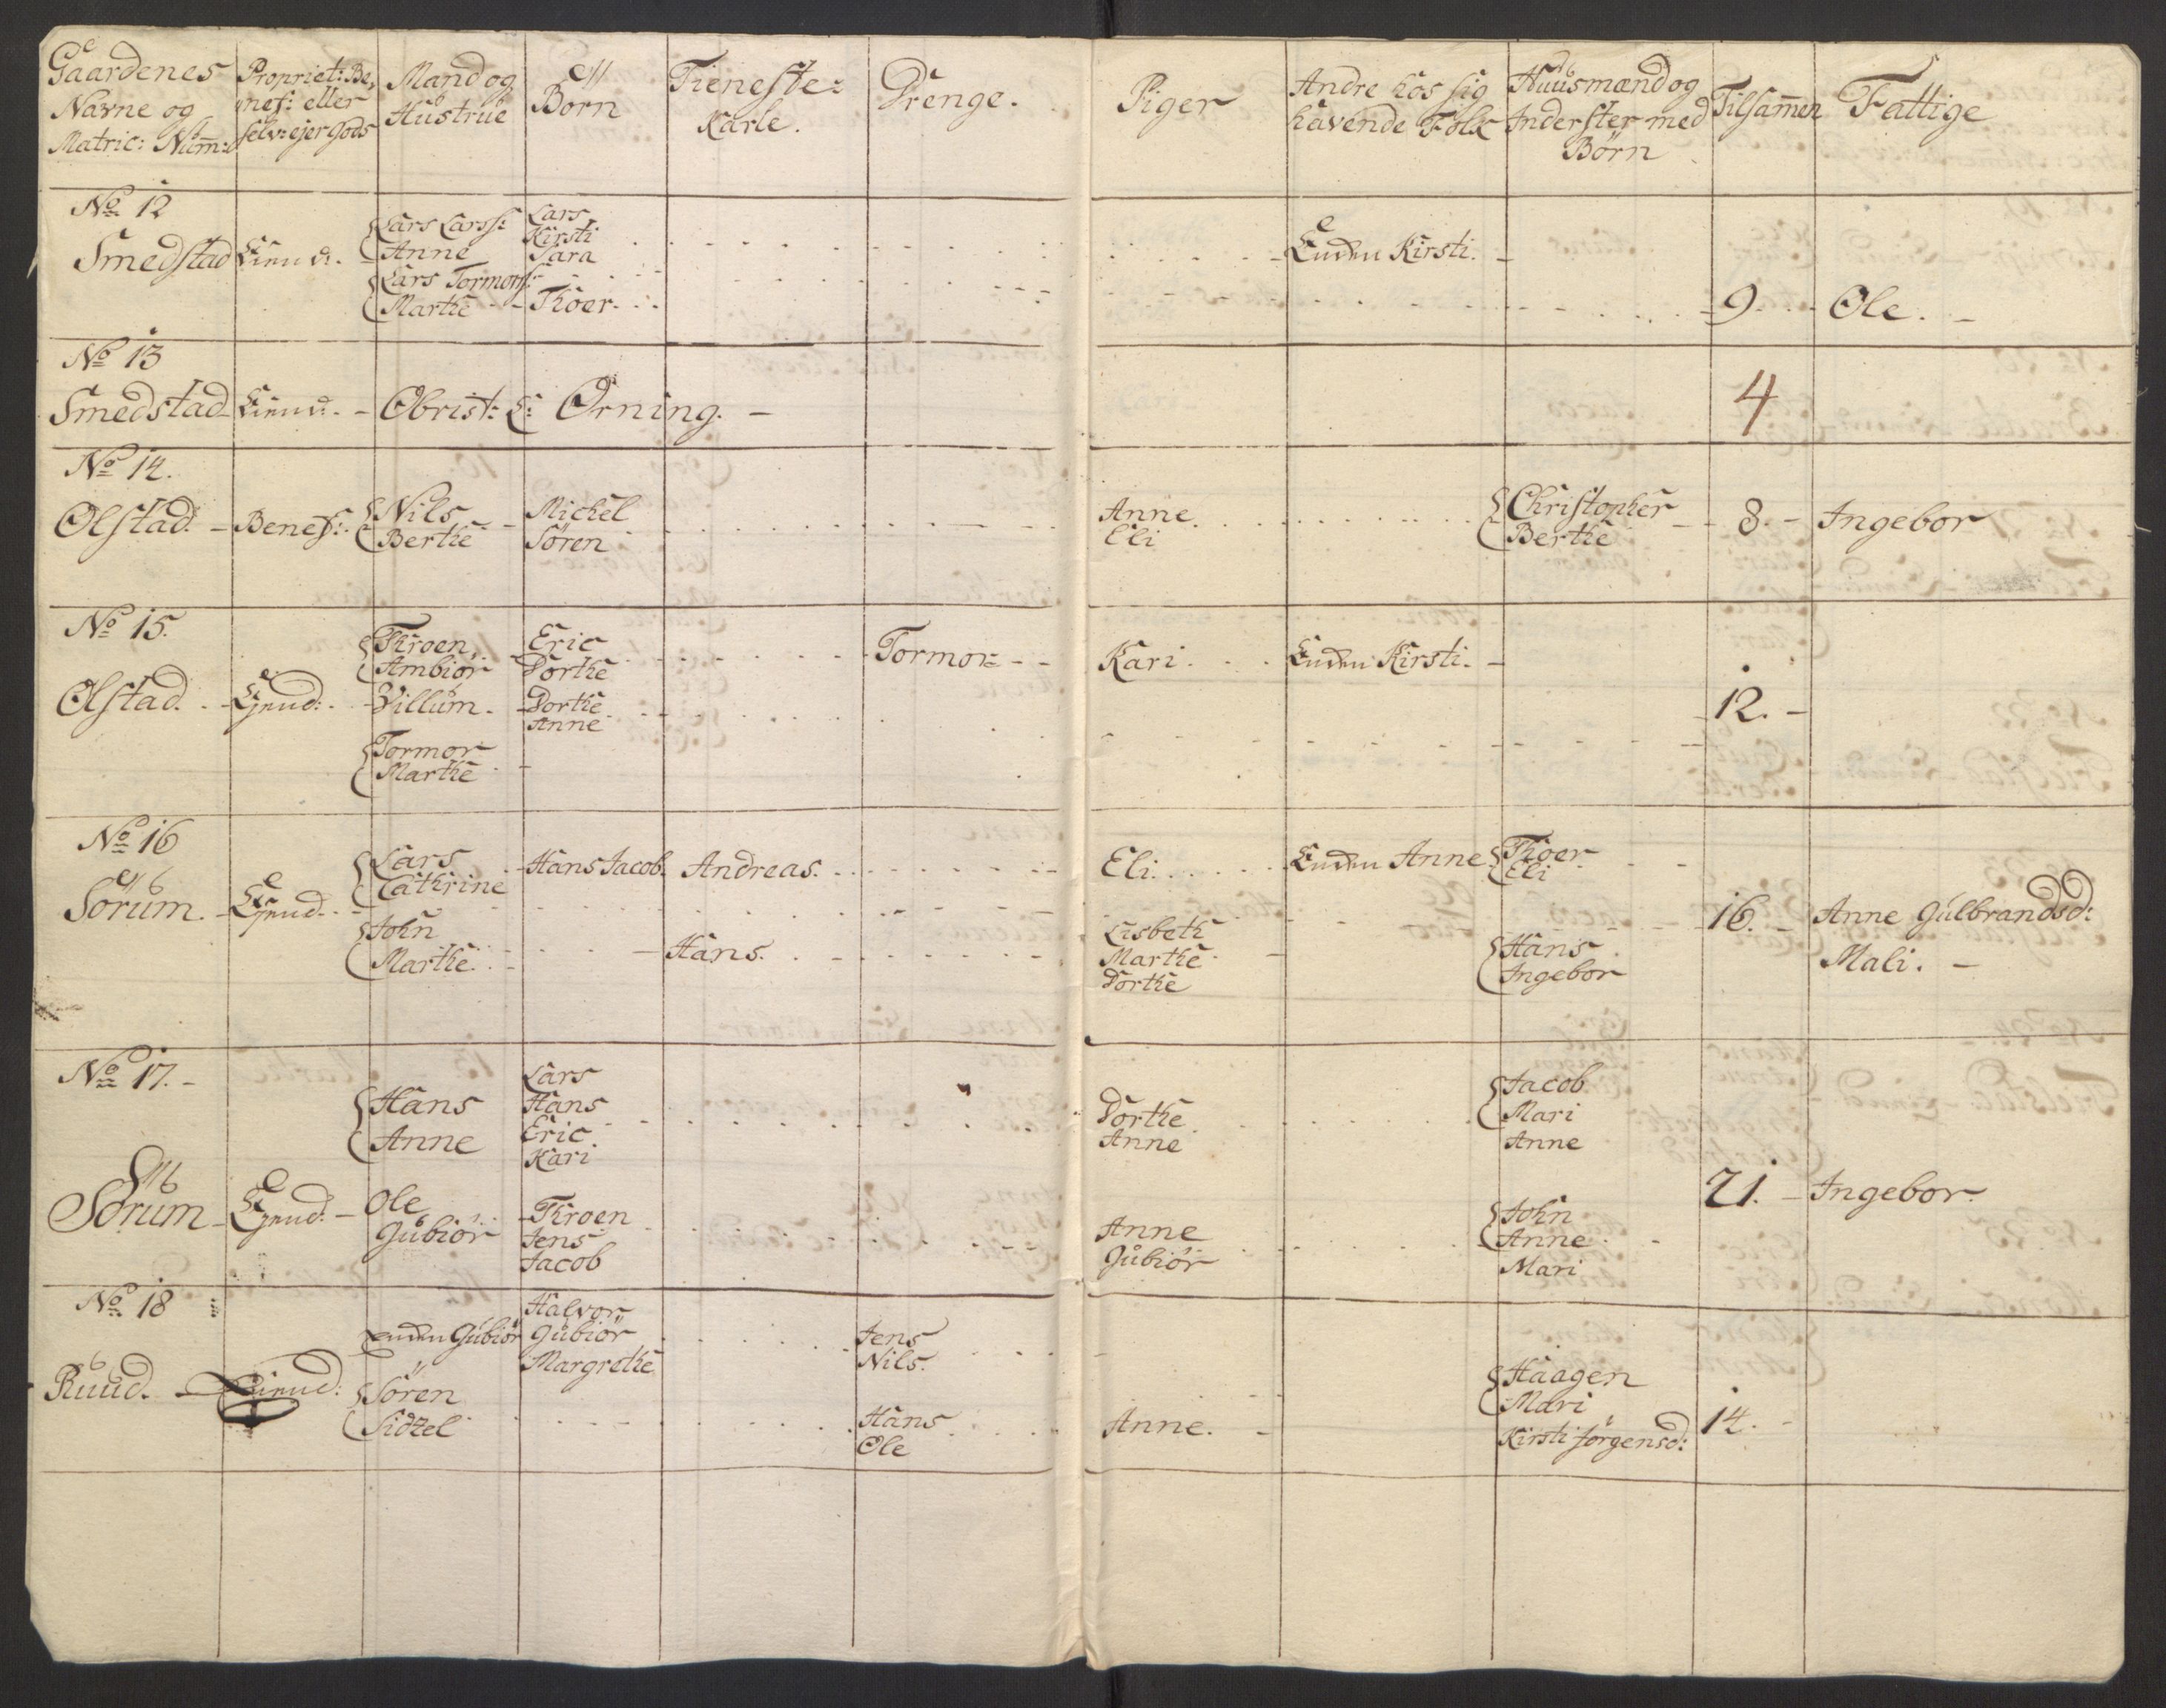 Gaardenes
Navne og
Matric: Num̄:
Propriet: Be,
nef: eller
selv: ejer Gods
Mand og
Hustrue
Børn
Tieneste:
Karle.
Drenge.
Piger
Andre hos sig
havende Folk
Huusmænd og
Inderster med
Børn
Tilsam̄en
Fattige
No 12
Smedstad
Lars Larss:
Anne
Lars Tormors:
Marthe
Lars
Kirsti
Sara
Thoer.
Enden Kirsti.
9.
Ole.
No 13
Smedstad
Obrist: L: Ørning.
4
No 14.
Olstad.
Benef:
Nils
Berthe
Michel
Søren
Anne
Eli
Christopher
Berthe
8.
Ingebor
No 15.
Olstad.
Throen
Ambiør
Villum.
Tormor
Marthe
Eric
Dorthe
Dorthe
Anne
Tormor
Kari.
Enden Kirsti.
12.
No 16
Sørum.
Lars
Cathrine
John
Marthe.
Hans Jacob.
Andreas.
Hans.
Eli.
Lisbeth
Marthe
Dorthe
Enden Anne
Thoer
Eli
Hans
Ingebor
16.
Anne Gulbrandsd:
Mali.
No 17.
Sørum
Hans
Anne
Ole
Gubiør
Lars
Hans
Eric
Kari
Throen
Jens
Jacob
Dorthe
Anne
Anne
Gubiør
Jacob
Mari
Anne
John
Anne
Mari
21.
Ingebor
No 18
Ruud.
Enden Gubiør
Søren
Sidzel
Halvor
Gubiør
Margrethe
Jens
Nils.
Hans
Ole
Anne.
Haagen
Mari
Kirsti Jørgensd:
14.